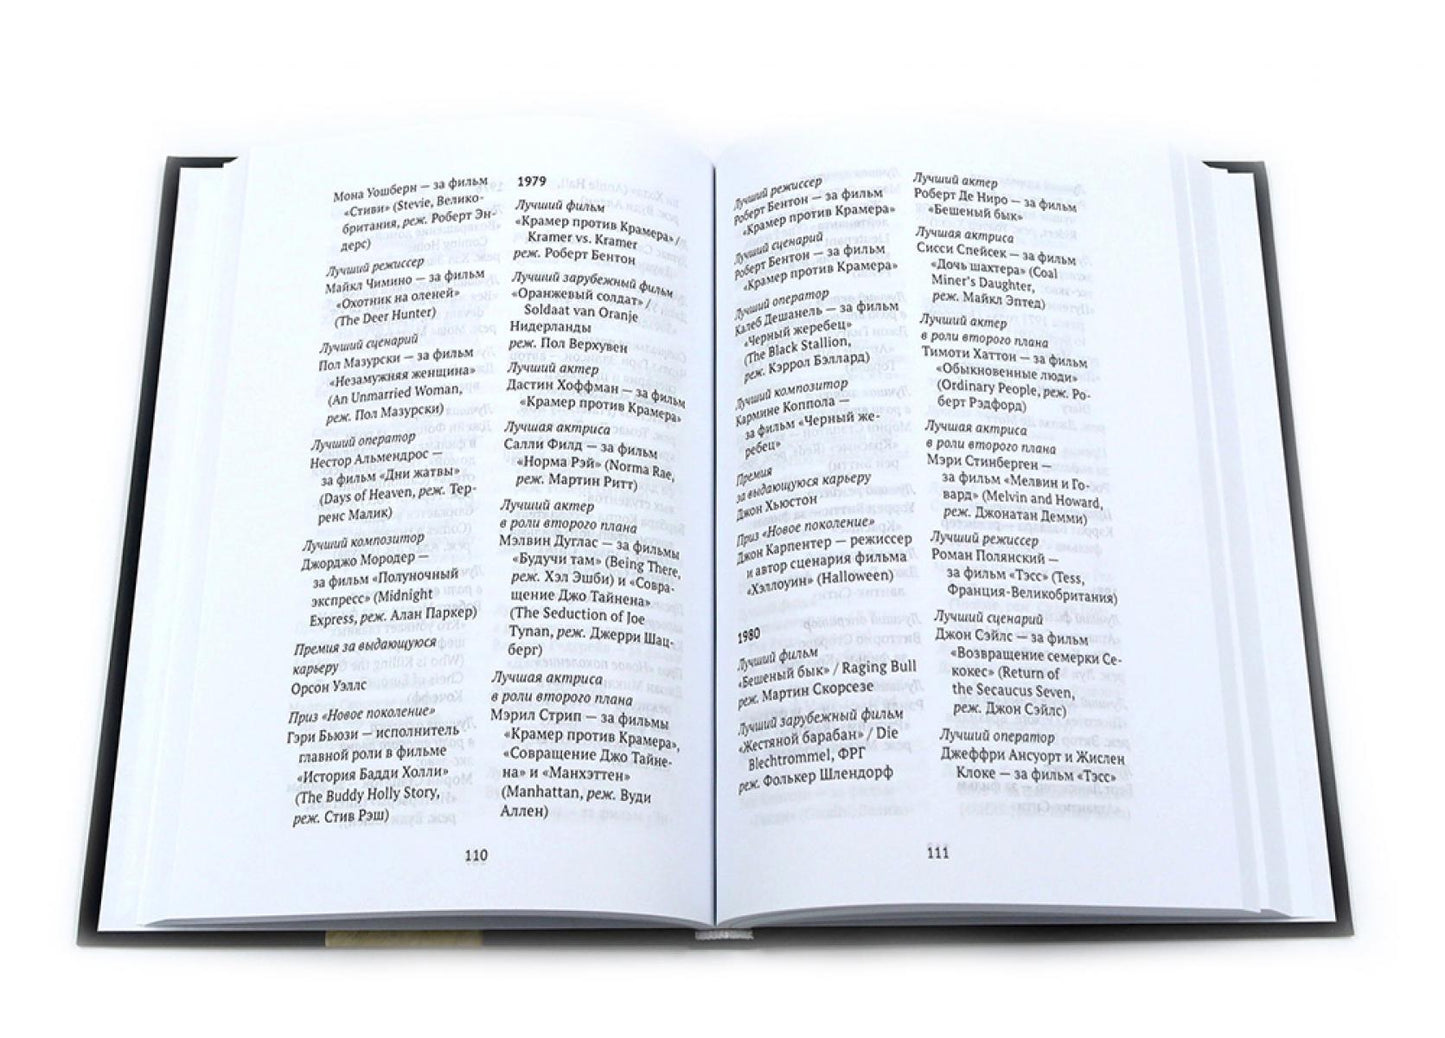 Мона Уошберн — за фильм
«Стиви» (Stevie, Велико-
британия, реж. Роберт Эн-
дерс)
Лучший режиссер
Майкл Чимино — за фильм
«Охотник на оленей»
(The Deer Hunter)
Лучший сценарий
Пол Мазурски — за фильм
«Незамужняя женщина»
(An Unmarried Woman,
реж. Пол Мазурски)
Лучший оператор
Нестор Альмендрос —
за фильм «Дни жатвы»
(Days of Heaven, реж. Тер-
ренс Малик)
Лучший композитор
Джорджо Мородер —
за фильм «Полуночный
экспресс» (Midnight
Express, реж. Алан Паркер)
Премия за выдающуюся
карьеру
Орсон Уэллс
Приз «Новое поколение»
Гэри Бьюзи — исполнитель
главной роли в фильме
«История Бадди Холли»
(The Buddy Holly Story,
реж. Стив Рэш)
1979
Лучший фильм
«Крамер против Крамера» /
Kramer vs. Kramer
реж. Роберт Бентон
Лучший зарубежный фильм
«Оранжевый солдат» /
Soldaat van Oranje
Нидерланды
реж. Пол Верхувен
Лучший актер
Дастин Хоффман — за фильм
«Крамер против Крамера»
Лучшая актриса
Салли Филд — за фильм
«Норма Рэй» (Norma Rae,
реж. Мартин Ритт)
Лучший актер
в роли второго плана
Мэлвин Дуглас — за фильмы
«Будучи там» (Being There,
реж. Хэл Эшби) и «Совра-
щение Джо Тайнена»
(The Seduction of Joe
Tynan, реж. Джерри Шац-
берг)
Лучшая актриса
в роли второго плана
Мэрил Стрип — за фильмы
«Крамер против Крамера»,
«Совращение Джо Тайне-
на» и «Манхэттен»
(Manhattan, реж. Вуди
Аллен)
110
Лучший режиссер
Роберт Бентон — за фильм
«Крамер против Крамера»
Лучший сценарий
Роберт Бентон — за фильм
«Крамер против Крамера»
Лучший оператор
Калеб Дешанель — за фильм
«Черный жеребец»
(The Black Stallion,
реж. Кэррол Бэллард)
Лучший композитор
Кармине Коппола —
за фильм «Черный же-
ребец»
Премия
за выдающуюся карьеру
Джон Хьюстон
Приз «Новое поколение»
Джон Карпентер — режиссер
и автор сценария фильма
«Хэллоуин» (Halloween)
1980
Лучший фильм
«Бешеный бык» / Raging Bull
реж. Мартин Скорсезе
Лучший зарубежный фильм
«Жестяной барабан» / Die
Blechtrommel, ФРГ
реж. Фолькер Шлендорф
Лучший актер
Роберт Де Ниро — за фильм
«Бешеный бык»
Лучшая актриса
Сисси Спейсек — за фильм
«Дочь шахтера» (Coal
Miner's Daughter,
реж. Майкл Эптед)
Лучший актер
в роли второго плана
Тимоти Хаттон — за фильм
«Обыкновенные люди»
(Ordinary People, реж. Ро-
берт Рэдфорд)
Лучшая актриса
в роли второго плана
Мэри Стинберген —
за фильм «Мелвин и Го-
вард» (Melvin and Howard,
реж. Джонатан Демми)
Лучший режиссер
Роман Полянский —
за фильм «Тэсс» (Tess,
Франция-Великобритания)
Лучший сценарий
Джон Сэйлс — за фильм
«Возвращение семерки Се-
кокес» (Return of
the Secaucus Seven,
реж. Джон Сэйлс)
Лучший оператор
Джеффри Ансуорт и Жислен
Клоке — за фильм «Тэсс»
111